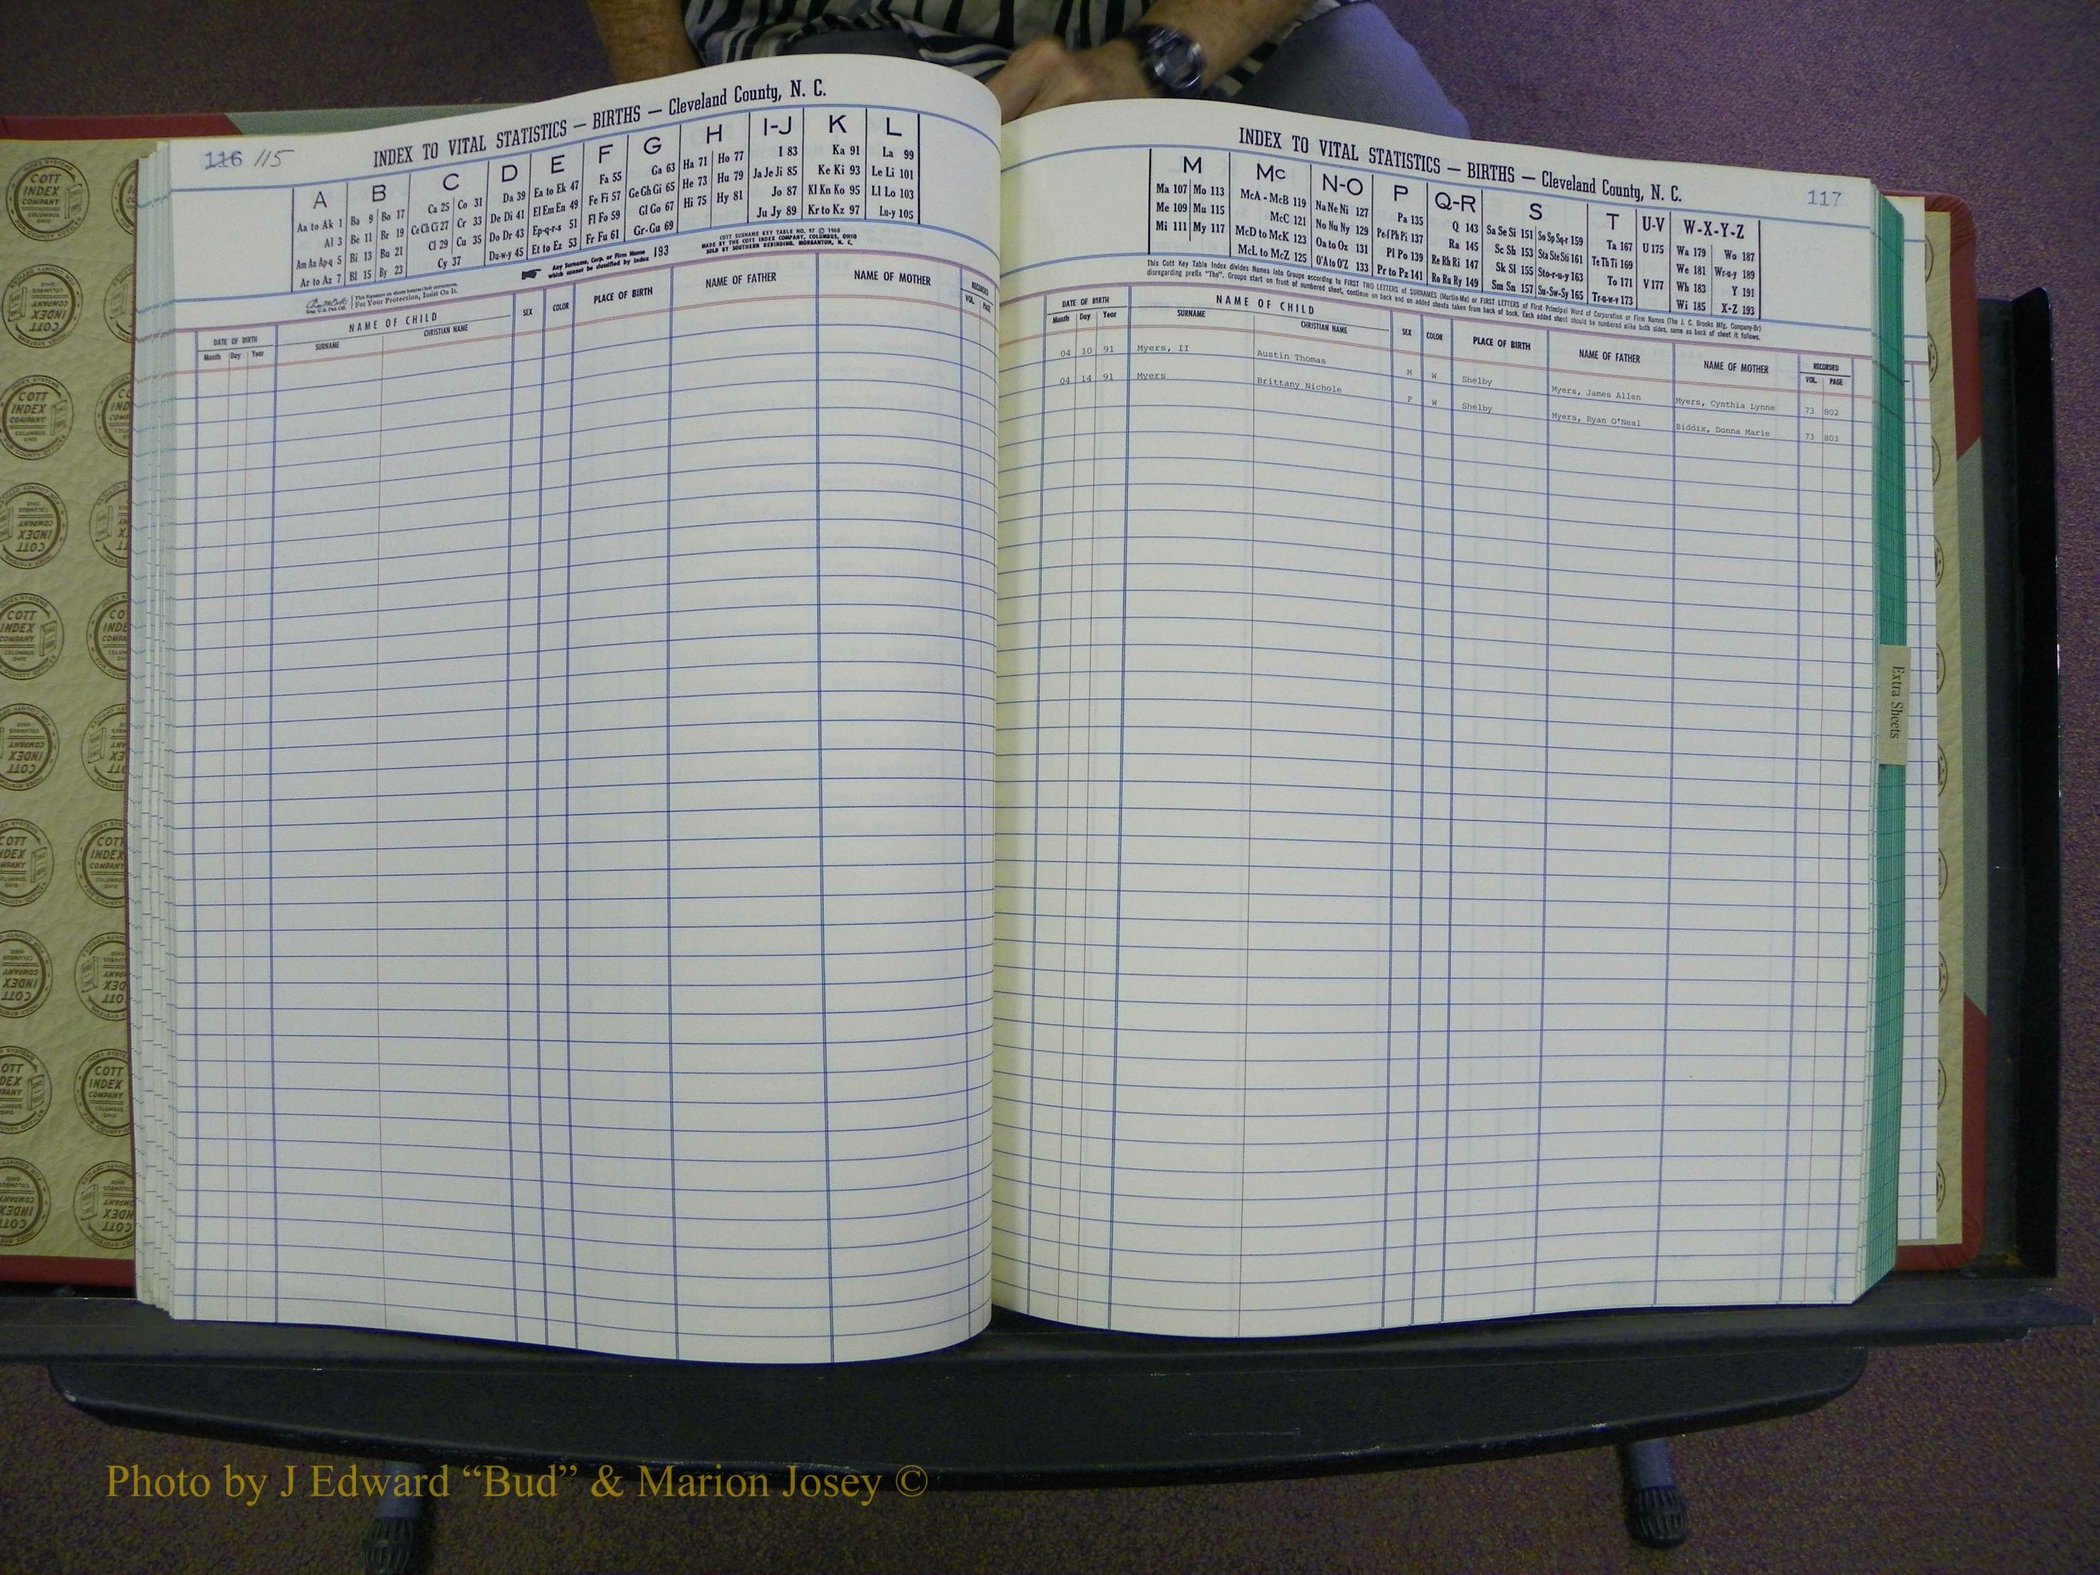 116 115
INDEX TO VITAL STATISTICS — BIRTHS — Cleveland County, N. C.
A B C D E F G H I-J K L
Aa to Ak 1 Ba 9 Bo 17 Ca 25 Co 31 Da 39 Ea to Ek 47 Fa 55 Ga 63 Ha 71 Ho 77 I 83 Ka 91 La 99
Al 3 Be 11 Br 19 Ce Ch Ci 27 Cr 33 De Di 41 El Em En 49 Fe Fi 57 Ge Gh Gi 65 He 73 Hu 79 Ja Je Ji 85 Ke Ki 93 Le Li 101
Am An Ap-q 5 Bi 13 Bu 21 Cl 29 Cu 35 Do Dr 43 Ep-q-r-s 51 Fl Fo 59 Gl Go 67 Hi 75 Hy 81 Jo 87 Kl Kn Ko 95 Ll Lo 103
Ar to Az 7 Bl 15 By 23 Cy 37 Du-w-y 45 Et to Ez 53 Fr Fu 61 Gr-Gu 69 Ju Jy 89 Kr to Kz 97 Lu-y 105
Any Surname, Corp. or Firm Name which cannot be classified by Index 193
COTT SURNAME KEY TABLE NO. 97 © 1960
MADE BY THE COTT INDEX COMPANY, COLUMBUS, OHIO
SOLD BY SOUTHERN REBINDING, MORGANTON, N. C.
For Your Protection, Insist On It.
DATE OF BIRTH NAME OF CHILD SEX COLOR PLACE OF BIRTH NAME OF FATHER NAME OF MOTHER RECORDED
Month Day Year SURNAME CHRISTIAN NAME VOL. PAGE
INDEX TO VITAL STATISTICS — BIRTHS — Cleveland County, N. C.
117
M Mc N-O P Q-R S T U-V W-X-Y-Z
Ma 107 Mo 113 McA - McB 119 Na Ne Ni 127 Pa 135 Q 143 Sa Se Si 151 So Sp Sq-r 159 Ta 167 U 175 Wa 179 Wo 187
Me 109 Mu 115 McC 121 No Nu Ny 129 Pe-f Ph Pi 137 Ra 145 Sc Sh 153 Sta Ste Sti 161 Te Th Ti 169 We 181 Wr-u-y 189
Mi 111 My 117 McD to McK 123 Oa to Oz 131 Pl Po 139 Re Rh Ri 147 Sk Sl 155 Sto-r-u-y 163 To 171 V 177 Wh 183 Y 191
McL to McZ 125 O'A to O'Z 133 Pr to Pz 141 Ro Ru Ry 149 Sm Sn 157 Su-Sw-Sy 165 Tr-u-w-y 173 Wi 185 X-Z 193
This Cott Key Table Index divides Names into Groups according to FIRST TWO LETTERS of SURNAMES (Martin-Ma) or FIRST LETTERS of First Principal Word of Corporation or Firm Names (The J. C. Brooks Mfg. Company-Br)
disregarding prefix "The". Groups start on front of numbered sheet, continue on back and on added sheets taken from back of book. Each added sheet should be numbered alike both sides, same as back of sheet it follows.
DATE OF BIRTH NAME OF CHILD SEX COLOR PLACE OF BIRTH NAME OF FATHER NAME OF MOTHER RECORDED
Month Day Year SURNAME CHRISTIAN NAME VOL. PAGE
04 10 91 Myers, II Austin Thomas M W Shelby Myers, James Allen Myers, Cynthia Lynne 73 802
04 14 91 Myers Brittany Nichole F W Shelby Myers, Ryan O'Neal Biddix, Donna Marie 73 803
Extra Sheets
COTT
INDEX
COMPANY
COLUMBUS
OHIO
Photo by J Edward “Bud” & Marion Josey ©